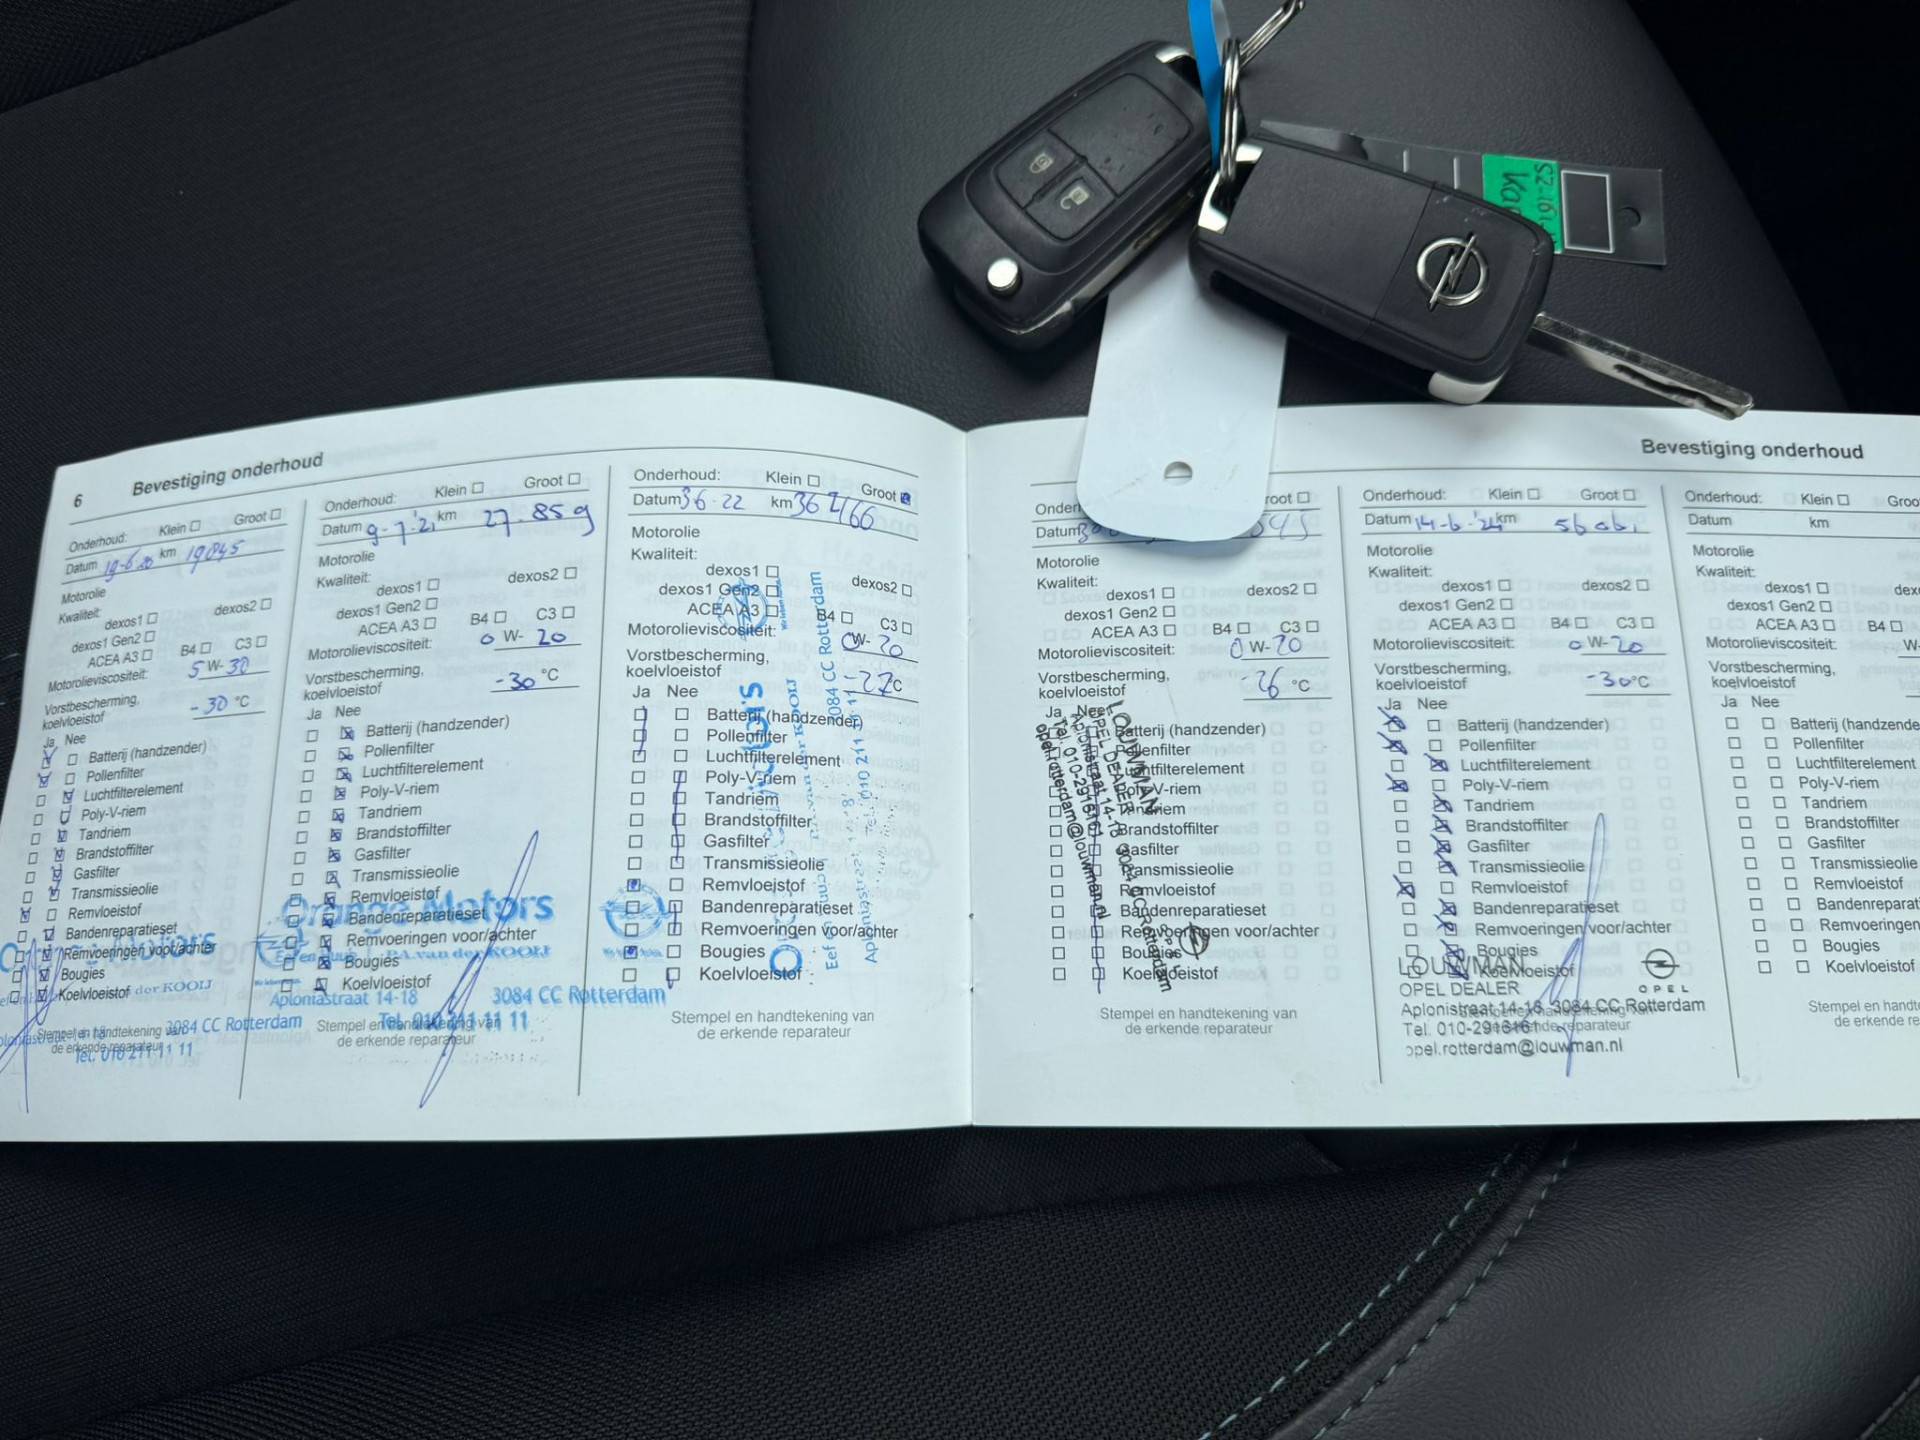 SZ-16
6
Bevestiging onderhoud
Onderhoud: Klein Groot
Datum 19-6 20 km 19845
Motorolie
Kwaliteit: dexos1 dexos2
dexos1 Gen2
ACEA A3 B4 C3
Motorolieviscositeit: 5 W- 30
Vorstbescherming,
koelvloeistof -30 °C
Ja Nee
Batterij (handzender)
Pollenfilter
Luchtfilterelement
Poly-V-riem
Tandriem
Brandstoffilter
Gasfilter
Transmissieolie
Remvloeistof
Bandenreparatieset
Remvoeringen voor/achter
Bougies
Koelvloeistof
der KOOIJ
3084 CC Rotterdam
Tel. 010 211 11 11
Stempel en handtekening van
de erkende reparateur
Onderhoud: Klein Groot
Datum 9-7-'21 km 27.859
Motorolie
Kwaliteit:
dexos1 dexos2
dexos1 Gen2
ACEA A3 B4 C3
Motorolieviscositeit: 0 W- 20
Vorstbescherming,
koelvloeistof -30 °C
Ja Nee
Batterij (handzender)
Pollenfilter
Luchtfilterelement
Poly-V-riem
Tandriem
Brandstoffilter
Gasfilter
Transmissieolie
Remvloeistof
Bandenreparatieset
Remvoeringen voor/achter
Bougies
Koelvloeistof
Orange Motors
P.A. van der KOOIJ
Aploniastraat 14-18 3084 CC Rotterdam
Tel. 010 211 11 11
Stempel en handtekening van
de erkende reparateur
Onderhoud: Klein Groot
Datum 36-22 km
Motorolie
Kwaliteit:
dexos1
dexos1 Gen2 dexos2
ACEA A3 B4 C3
Motorolieviscositeit: 0W- 20
Vorstbescherming,
koelvloeistof -27°C
Ja Nee
Batterij (handzender)
Pollenfilter
Luchtfilterelement
Poly-V-riem
Tandriem
Brandstoffilter
Gasfilter
Transmissieolie
Remvloeistof
Bandenreparatieset
Remvoeringen voor/achter
Bougies
Koelvloeistof
3084 CC Rotterdam
Stempel en handtekening van
de erkende reparateur
Bevestiging onderhoud
Datum
Motorolie
Kwaliteit:
dexos1 dexos2
dexos1 Gen2
ACEA A3 B4 C3
Motorolieviscositeit: 0 W- 20
Vorstbescherming,
koelvloeistof -26 °C
Ja Nee
Batterij (handzender)
Pollenfilter
Luchtfilterelement
Poly-V-riem
Tandriem
Brandstoffilter
Gasfilter
Transmissieolie
Remvloeistof
Bandenreparatieset
Remvoeringen voor/achter
Bougies
Koelvloeistof
LOUWMAN
OPEL DEALER
Aplonistraat 14-18 3084 CC Rotterdam
Tel. 010-2916161
opel.rotterdam@louwman.nl
OPEL
Stempel en handtekening van
de erkende reparateur
Onderhoud: Klein Groot
Datum 14-6-'24 km
Motorolie
Kwaliteit:
dexos1 dexos2
dexos1 Gen2
ACEA A3 B4 C3
Motorolieviscositeit: 0 W- 20
Vorstbescherming,
koelvloeistof -30°C
Ja Nee
Batterij (handzender)
Pollenfilter
Luchtfilterelement
Poly-V-riem
Tandriem
Brandstoffilter
Gasfilter
Transmissieolie
Remvloeistof
Bandenreparatieset
Remvoeringen voor/achter
Bougies
Koelvloeistof
LOUWMAN
OPEL DEALER
OPEL
Aplonistraat 14-18 3084 CC Rotterdam
Tel. 010-2916161
opel.rotterdam@louwman.nl
Onderhoud: Klein Groo
Datum km
Motorolie
Kwaliteit:
dexos1 dex
dexos1 Gen2
ACEA A3 B4
Motorolieviscositeit: W-
Vorstbescherming,
koelvloeistof
Ja Nee
Batterij (handzende
Pollenfilter
Luchtfilterelement
Poly-V-riem
Tandriem
Brandstoffilter
Gasfilter
Transmissieolie
Remvloeistof
Bandenreparat
Remvoeringen
Bougies
Koelvloeistof
Stempel en handt
de erkende re